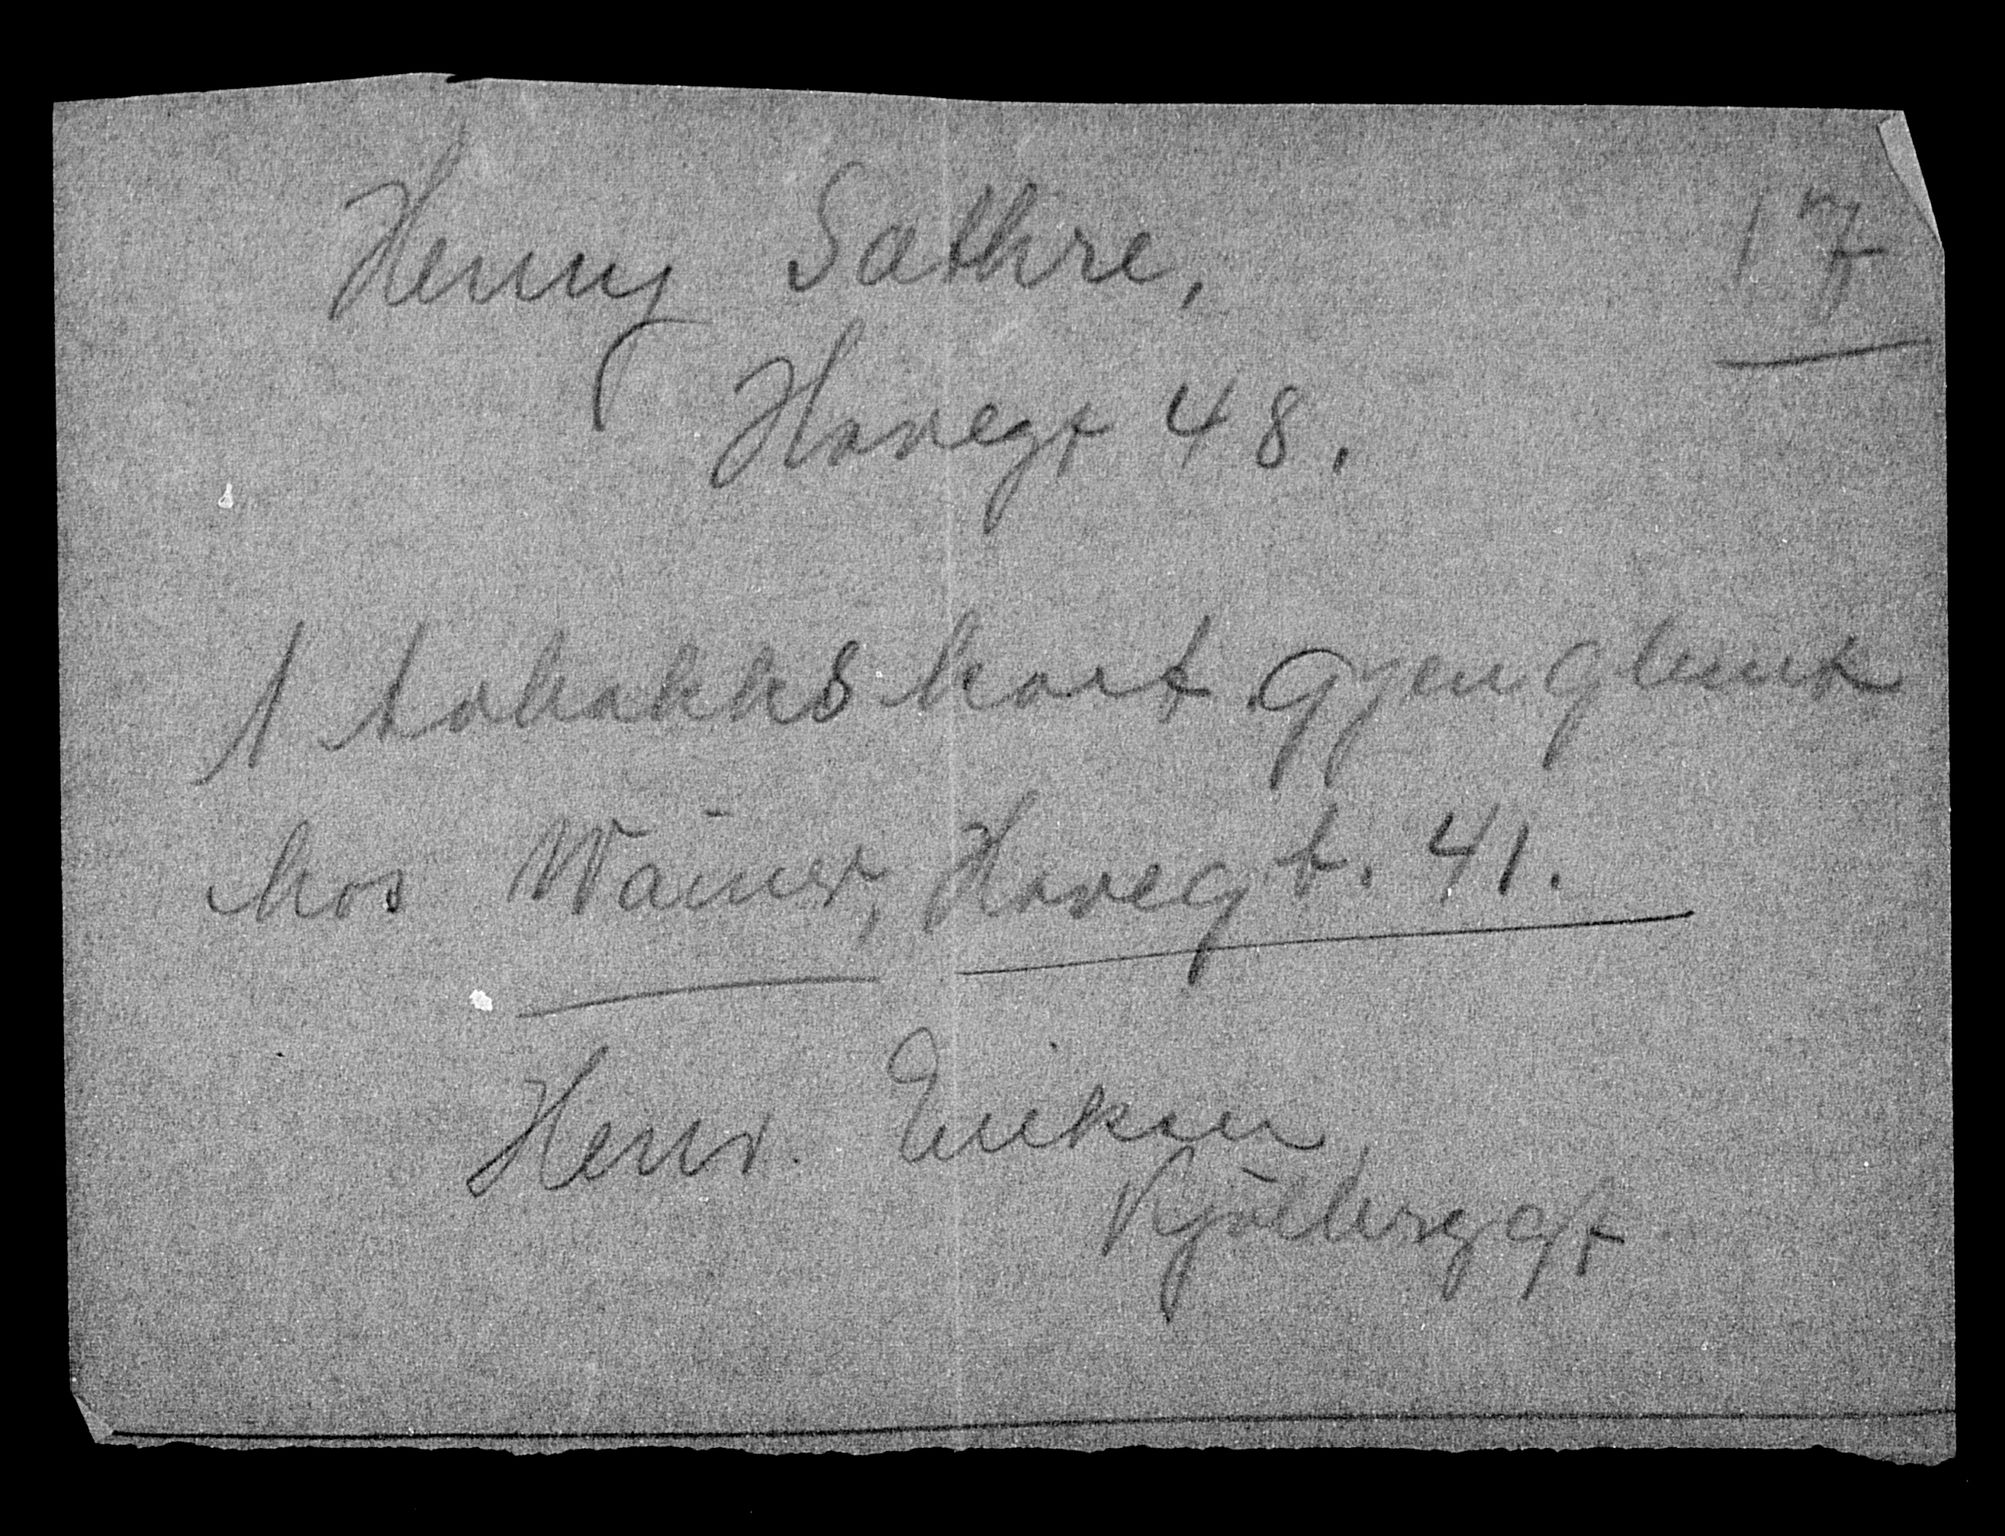 Henny Sæthre,
17
Hovegt 48.
1 tobakkskort gjenglemt
hos Wainer, Hovegt. 41.
Henr. Eriksen
Kjölberggt